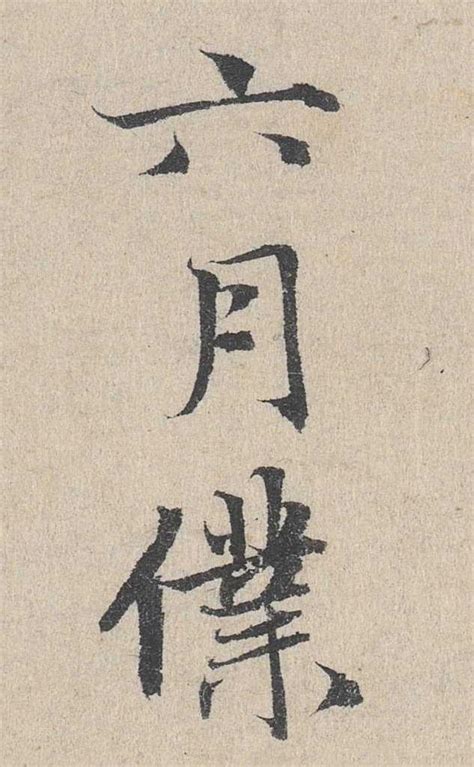 六月僕